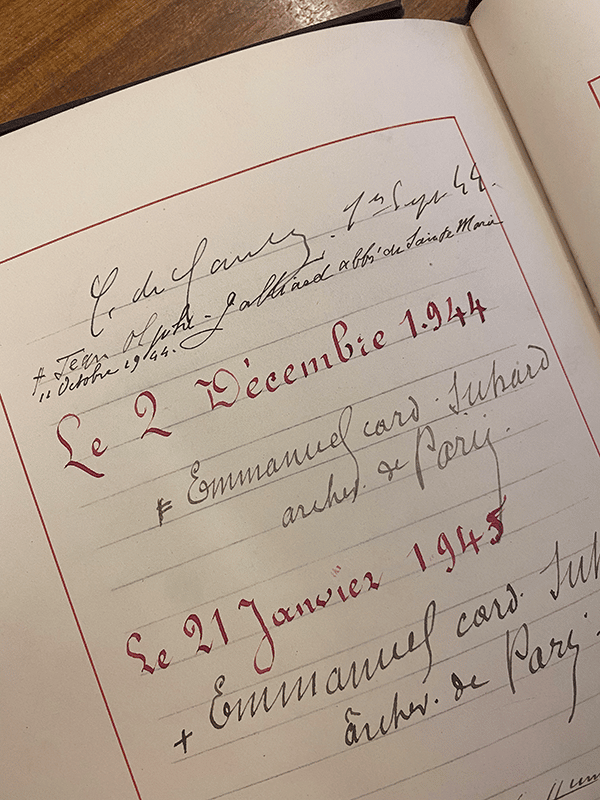 C. de Gaulle. 1er Sept 44.
+ Jean Olphe-Galliard abbé de Sainte Marie
11 Octobre 1944.
Le 2 Décembre 1.944
+ Emmanuel card. Suhard
archev. de Paris.
Le 21 Janvier 1945
+ Emmanuel card. Suh
archev. de Paris.